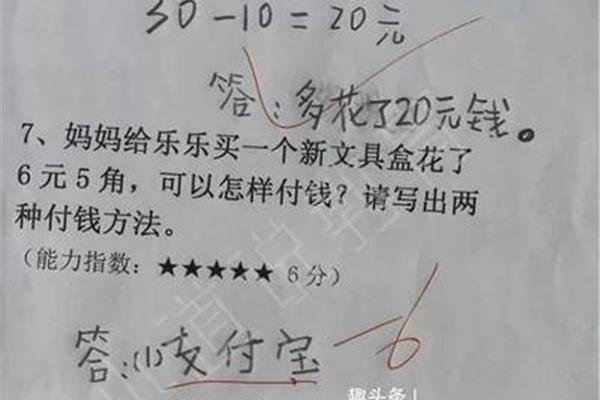 30－10＝20元
答：多花了20元钱。
7、妈妈给乐乐买一个新文具盒花了
6元5角，可以怎样付钱？请写出两
种付钱方法。
（能力指数：★★★★★ 6分）
答：(1)支付宝 －6
趣头条